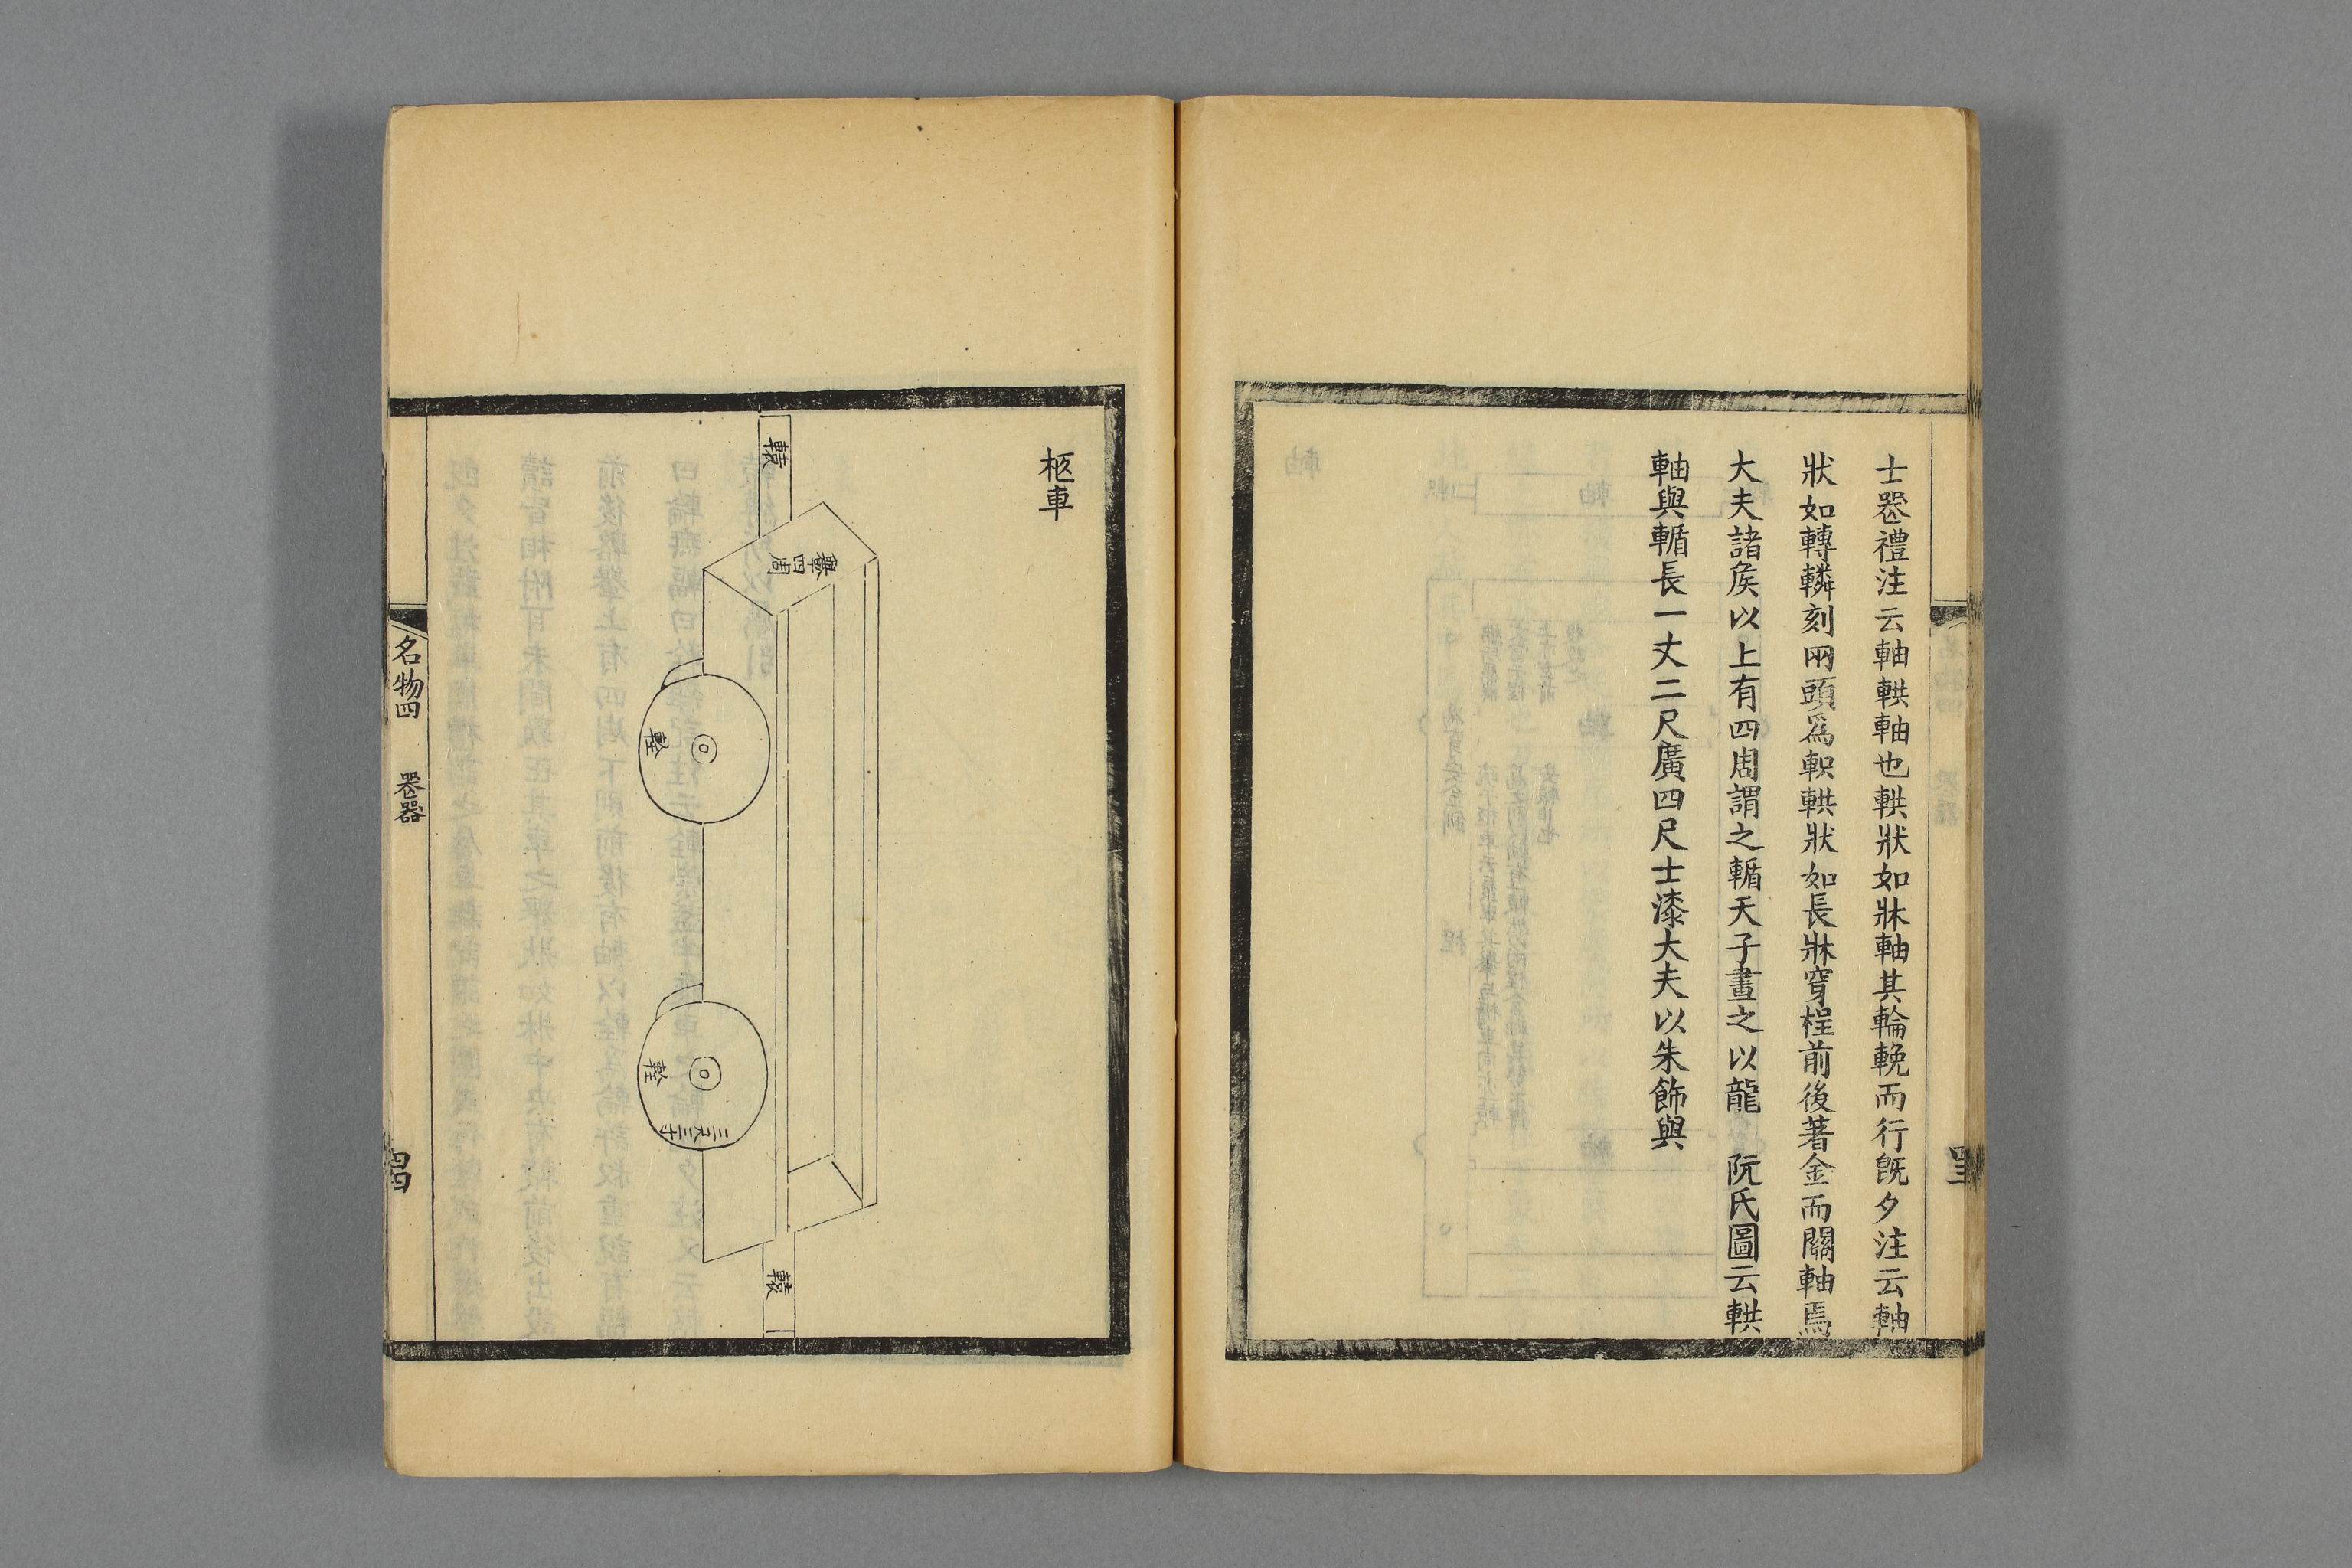 士䘮禮注云軸輁軸也輁狀如牀軸其輪輓而行旣夕注云軸
狀如轉轔刻兩頭爲軹輁狀如長牀穿桯前後著金而關軸焉
大夫諸矦以上有四周謂之輴天子畫之以龍 阮氏圖云輁
軸與輴長一丈二尺廣四尺士漆大夫以朱飾與
柩車
轅
轝四周
輇
輇
三尺三寸
轅
名物四 䘮器